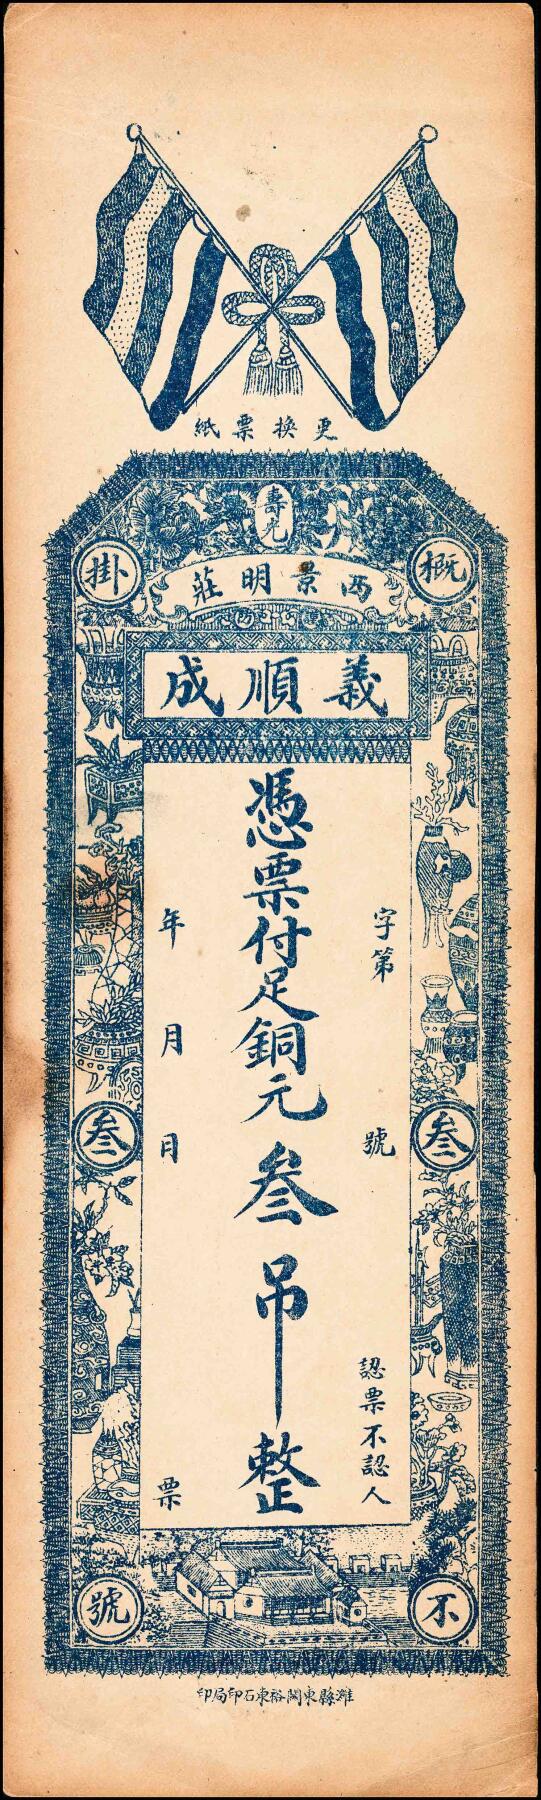 更換票紙
壽光
概
掛
西景明莊
義順成
字第 號
認票不認人
憑票付足銅元叁吊整
年 月 日 票
叁
叁
不
號
濰縣東關裕東石印局印